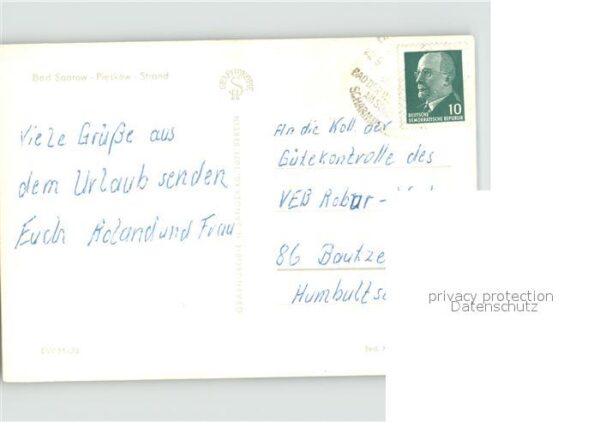 Bad Saarow - Pieskow - Strand
10
DEUTSCHE
DEMOKRATISCHE REPUBLIK
Viele Grüße aus
dem Urlaub senden
Euch Roland und Frau
An die Koll. der
Gütekontrolle des
VEB Robur-
86 Bautze
Humbults
privacy protection
Datenschutz